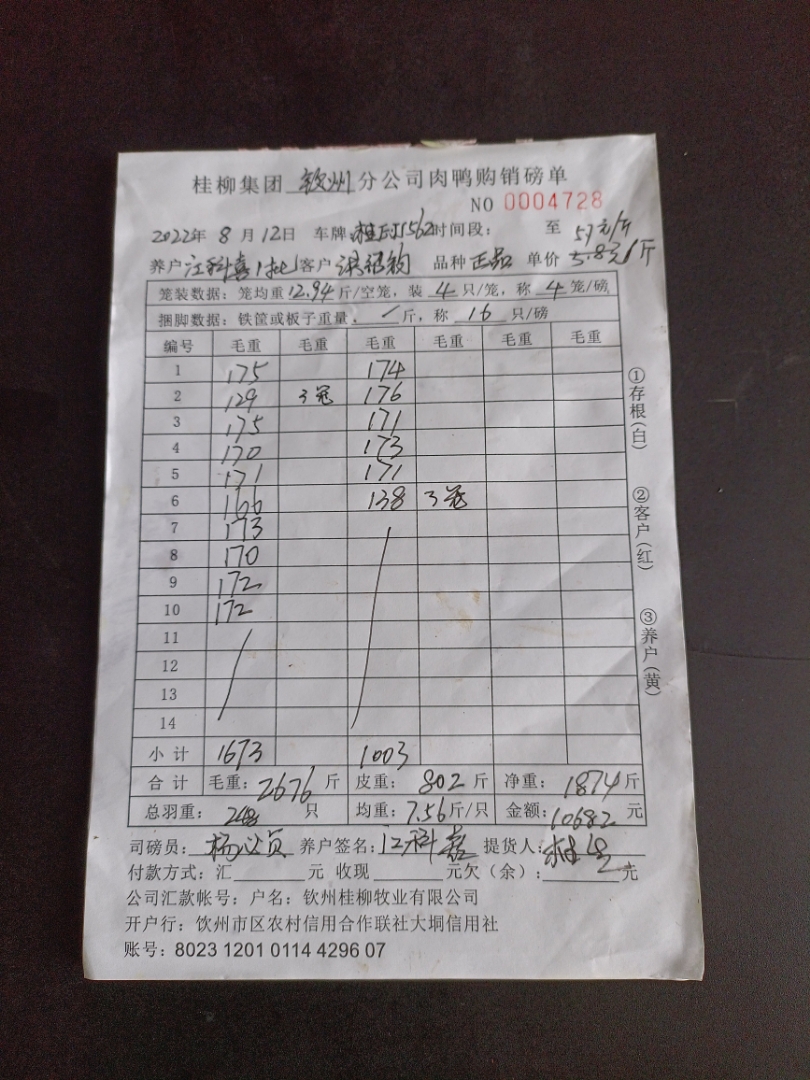 桂柳集团 钦州 分公司肉鸭购销磅单
NO 0004728
2022年 8 月 12日 车牌 时间段： 至 5.7元/斤
养户 江科喜 1批 客户 洪绍钧 品种 正品 单价 5.8元/斤
笼装数据：笼均重 12.94 斤/空笼，装 4 只/笼，称 4 笼/磅
捆脚数据：铁筐或板子重量， / 斤，称 16 只/磅
编号 毛重 毛重 毛重 毛重 毛重 毛重
1 175 174
2 129 3笼 176
3 175 171
4 170 173
5 171 171
6 166 138 3笼
7 173
8 170
9 172
10 172
11
12
13
14
小计 1673 1003
合计 毛重：2676 斤 皮重： 802 斤 净重： 1874 斤
总羽重： 248 只 均重：7.56斤/只 金额：10682 元
司磅员： 养户签名：江科喜 提货人：
付款方式：汇 元 收现 元欠（余）： 元
公司汇款帐号：户名：钦州桂柳牧业有限公司
开户行：钦州市区农村信用合作联社大垌信用社
账号：8023 1201 0114 4296 07
①存根（白）
②客户（红）
③养户（黄）